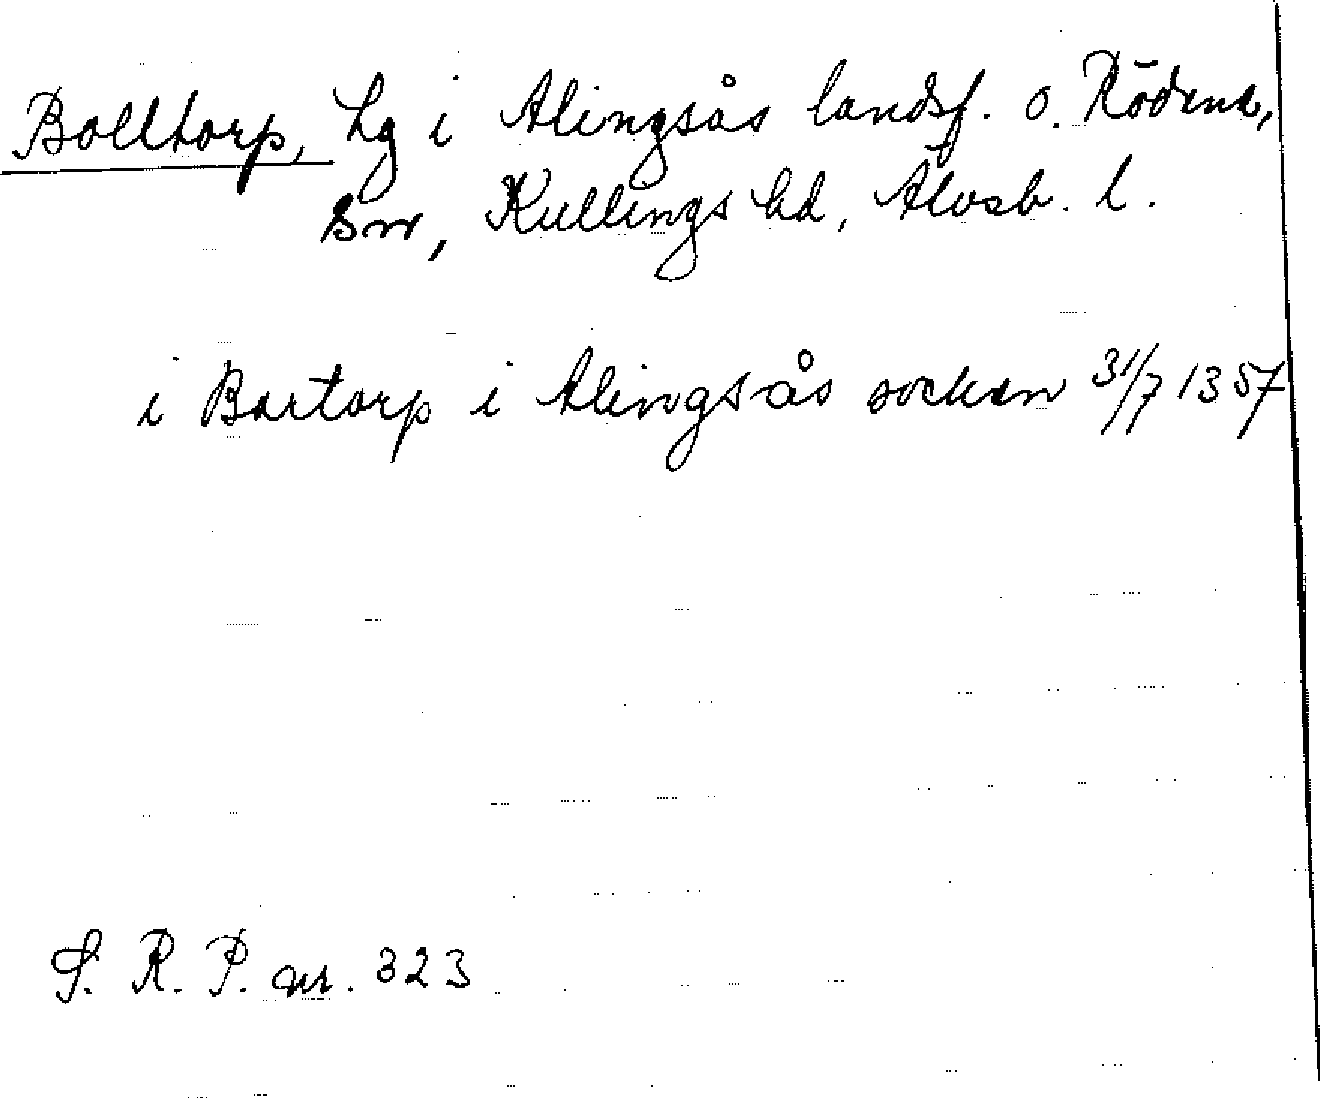 Bolltorp, Lg i Alingsås landsf. o. Rödene,
snr, Kullings hd, Älvsb. l.
i Bortorp i Alingsås socken 31/7 1357
S. R. P. nr. 323